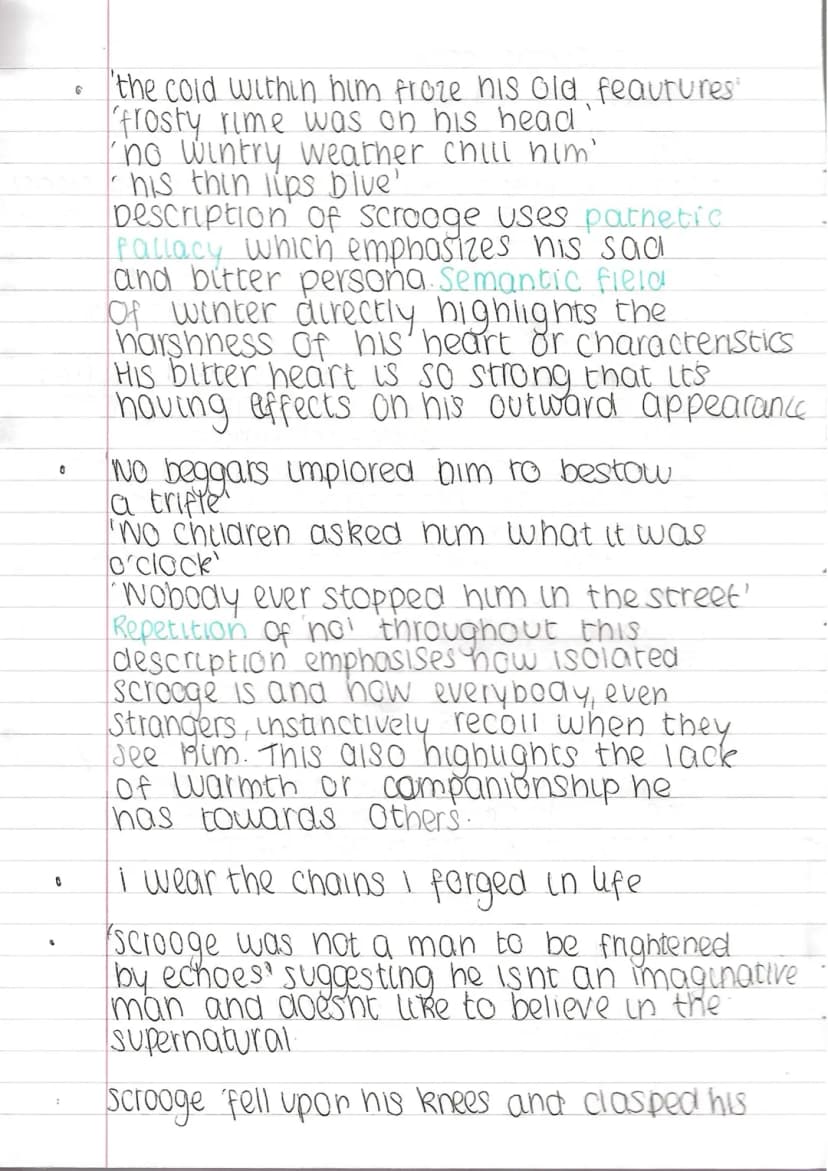 'the cold within him froze his old feautures'
'frosty rime was on his head'
'no wintry weather chill him'
'his thin lips blue'
Description of scrooge uses pathetic
fallacy which emphasizes his sad
and bitter persona. Semantic field
of winter directly highlights the
harshness of his heart or characteristics
His bitter heart is so strong that it's
having effects on his outward appearance
'No beggars implored him to bestow
a trifle'
'No children asked him what it was
o'clock'
'Nobody ever stopped him in the street'
Repetition of 'no' throughout this
description emphasises how isolated
scrooge is and how everybody, even
strangers, instinctively recoil when they
see him. This also highlights the lack
of warmth or companionship he
has towards others.
i wear the chains i forged in life
'scrooge was not a man to be frightened
by echoes' suggesting he isnt an imaginative
man and doesnt like to believe in the
supernatural
scrooge 'fell upon his knees and clasped his